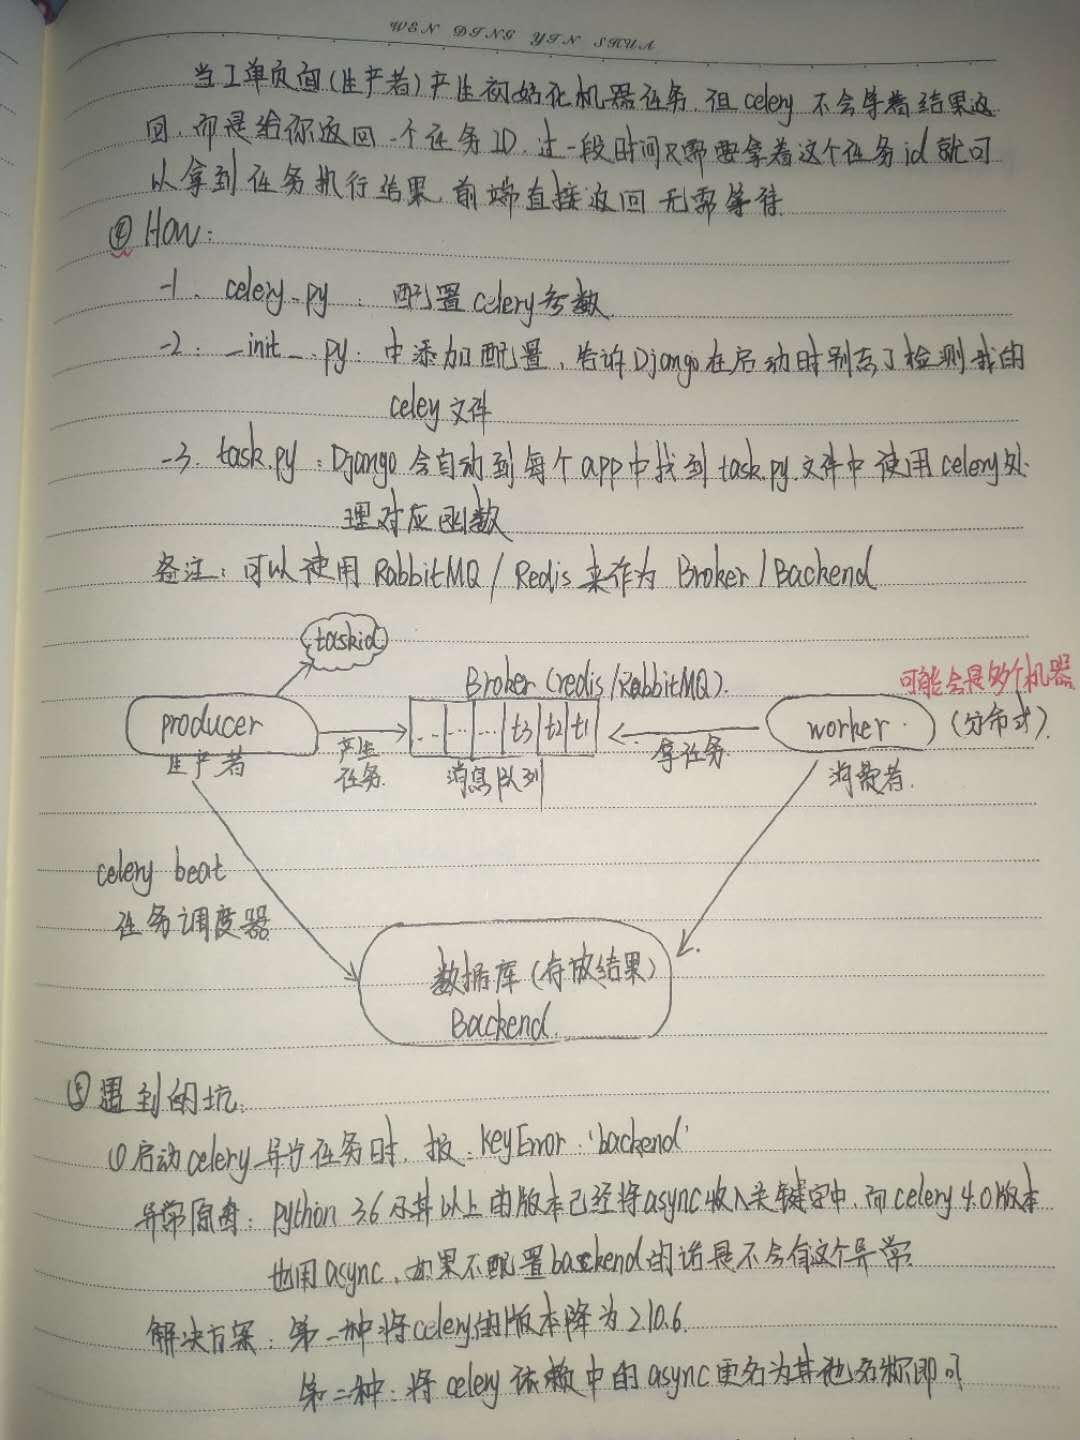 WEN DING YIN SHUA
当工单页面(生产者)产生初始化机器任务,但celery 不会等着结果返
回,而是给你返回一个任务ID,过一段时间只需要拿着这个任务id就可
以拿到任务执行结果,前端直接返回无需等待
④ How:
-1. celery.py : 配置celery参数
-2. __init__.py: 中添加配置,告诉Django在启动时别忘了检测我的
celey文件
-3. task.py : Django会自动到每个app中找到task.py文件中使用celery处
理对应函数
备注: 可以使用RabbitMQ / Redis来作为 Broker / Backend
taskid
Broker (redis/RabbitMQ).
可能会是多个机器
producer
... ... ... t3 t2 t1
worker.
(分布式).
生产者
产生
任务
消息队列
拿任务
消费者.
celery beat
任务调度器
数据库(存放结果)
Backend.
⑤ 遇到的坑:
① 启动celery异步任务时,报: KeyError: 'backend'
异常原因: python 3.6及其以上的版本已经将async收入关键字中,而celery 4.0版本
也用async,如果不配置backend的话是不会有这个异常
解决方案: 第一种将celery的版本降为2.10.6.
第二种: 将celery依赖中的async更名为其他名称即可